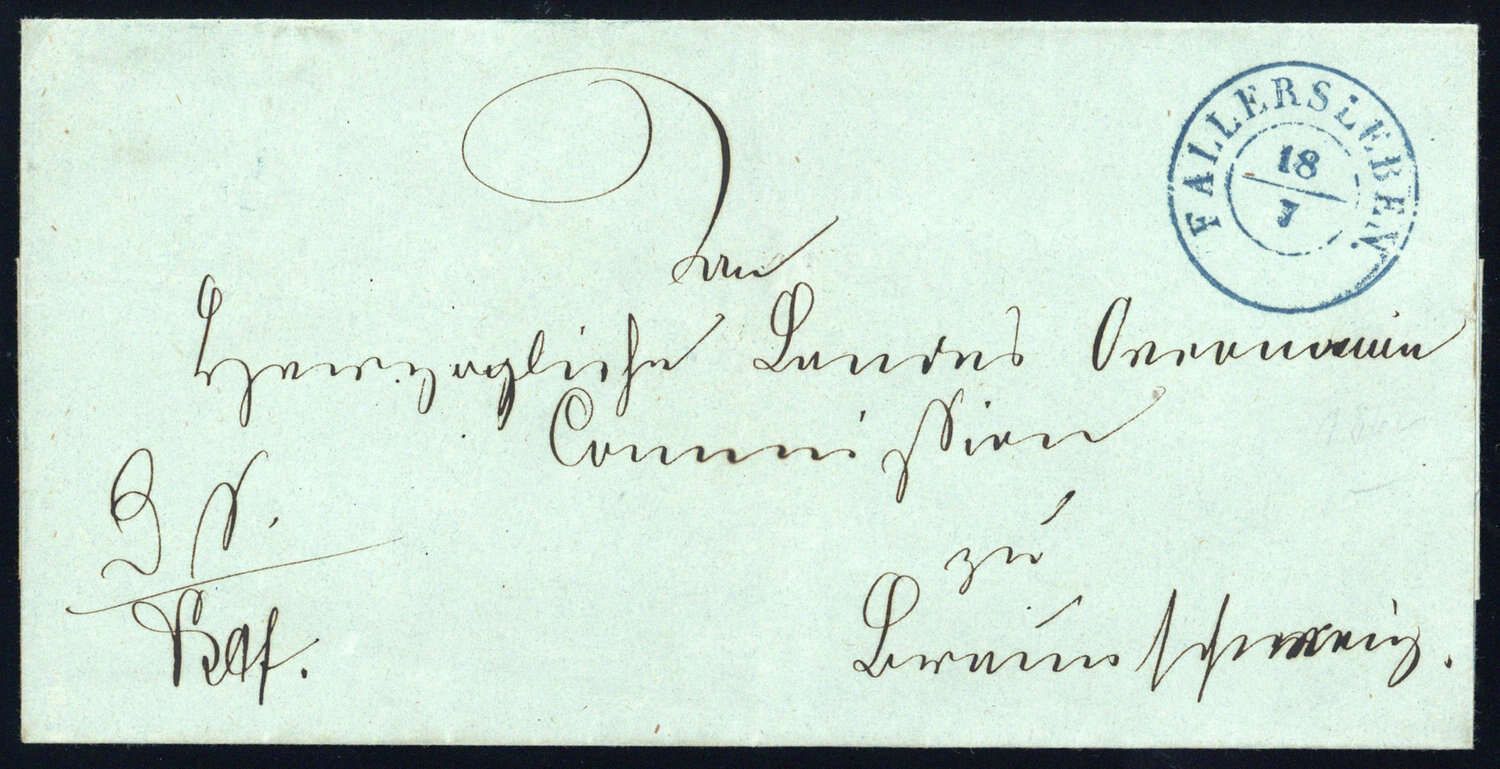 FALLERSLEBEN
18
7
An
Herzogliche Landes Oeconomie
Commission
zu
Braunschweig.